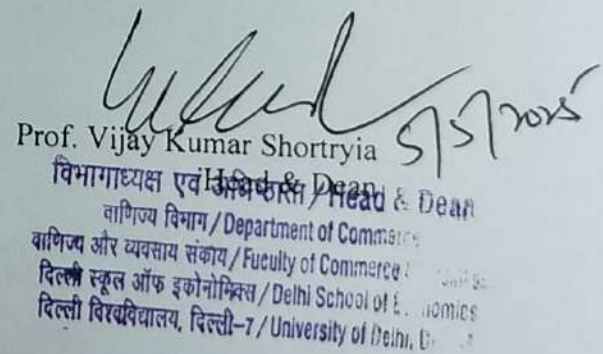 5/5/2025
Prof. Vijay Kumar Shortryia
Head & Dean
विभागाध्यक्ष एवं अधिष्ठाता / Head & Dean
वाणिज्य विभाग / Department of Commerce
वाणिज्य और व्यवसाय संकाय / Fuculty of Commerce
दिल्ली स्कूल ऑफ इकोनोमिक्स / Delhi School of E..nomics
दिल्ली विश्वविद्यालय, दिल्ली-7 / University of Delhi,